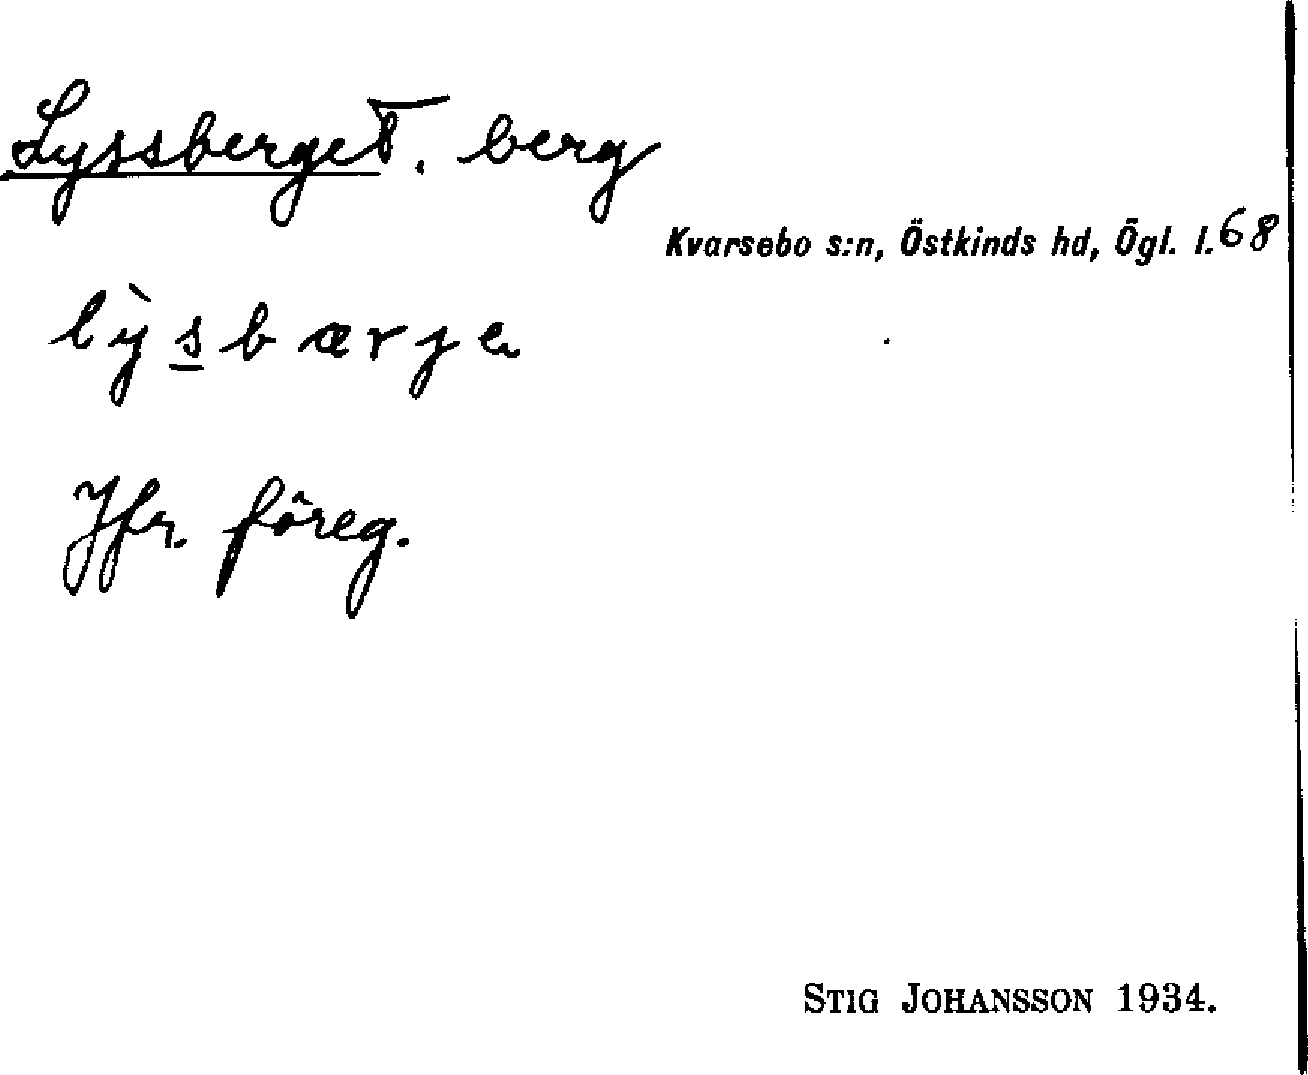 Lyssberget. berg
Kvarsebo s:n, Östkinds hd, Ögl. l. 68
lỳsbærje
Jfr. föreg.
STIG JOHANSSON 1934.